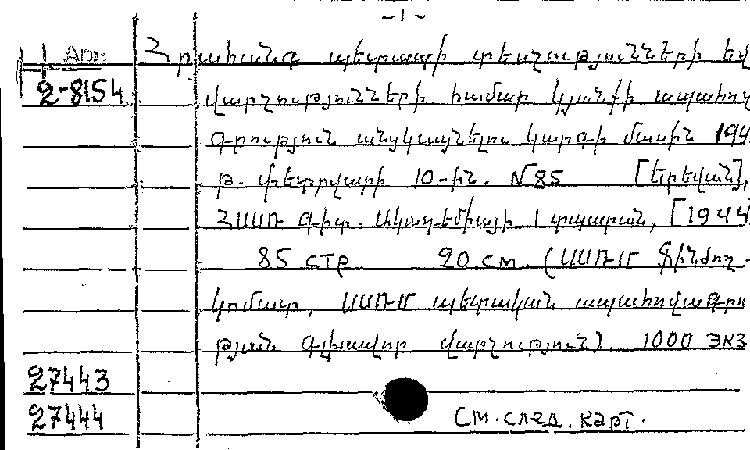 - 1 -
Арм Հրահանգ պետական տեսչությունների եվ
2-8154 վարչությունների համար կյանքի ապահով
գրություն անցկացնելու կարգի մասին 194
թ. փետրվարի 10-ին. №85 [Երեվան],
ՀՍՍՌ Գիտ. Ակադեմիայի տպարան, [1944
85 стр 20 см. (ՍՍՌՄ Ֆինժող-
կոմատ, ՍՍՌՄ պետական ապահովագրու
թյան գլխավոր վարչություն). 1000 экз
27443
27444 См. след. карт.